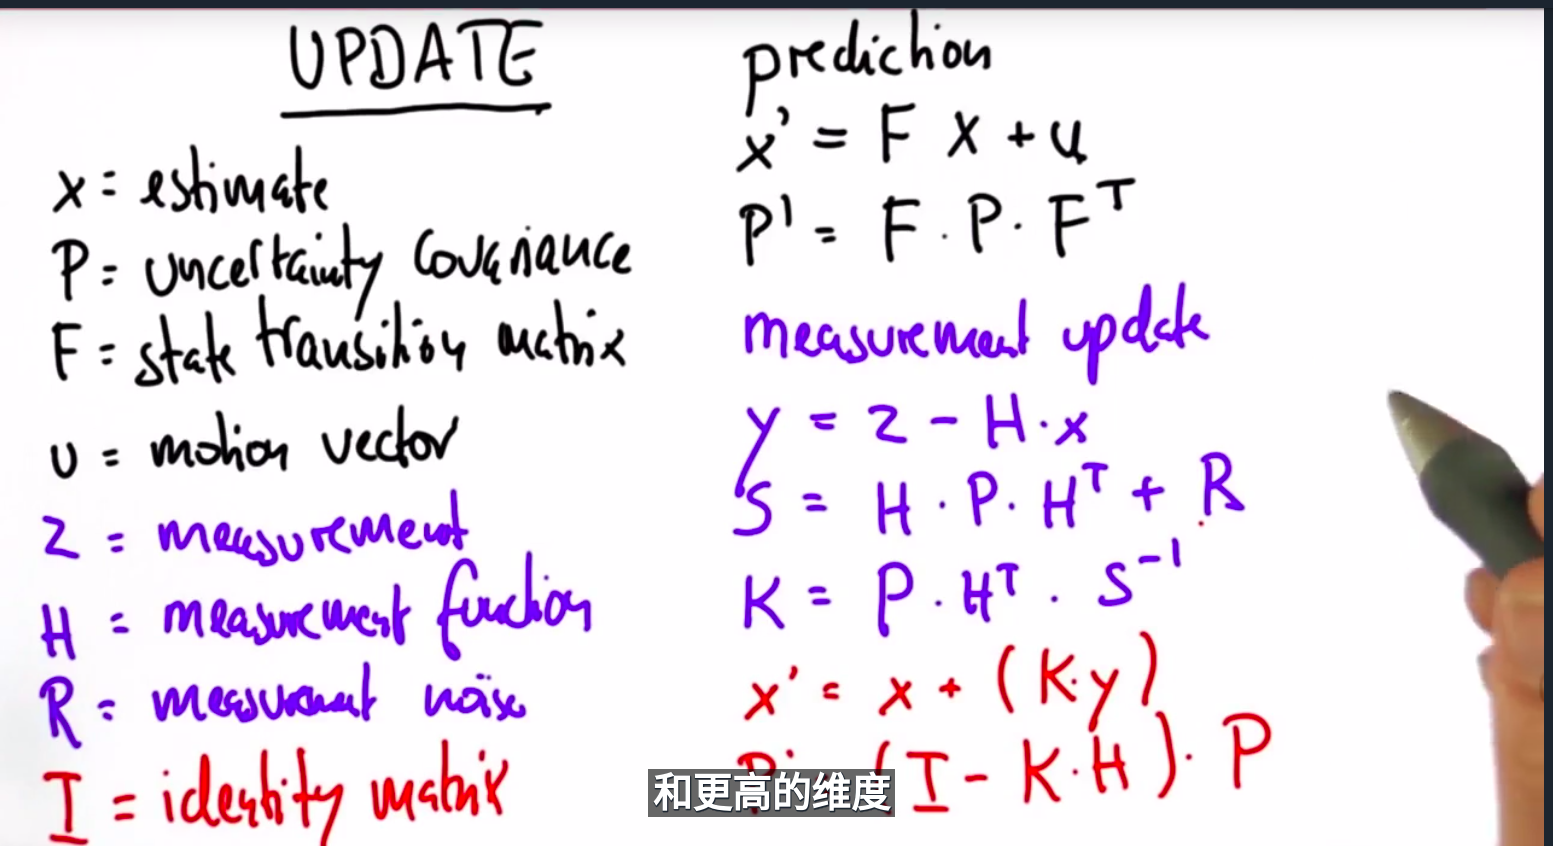 UPDATE
x = estimate
P = uncertainty covariance
F = state transition matrix
u = motion vector
z = measurement
H = measurement function
R = measurement noise
I = identity matrix
prediction
x' = F x + u
P' = F · P · Fᵀ
measurement update
y = z - H · x
S = H · P · Hᵀ + R
K = P · Hᵀ · S⁻¹
x' = x + (K · y)
P' = (I - K · H) · P
和更高的维度